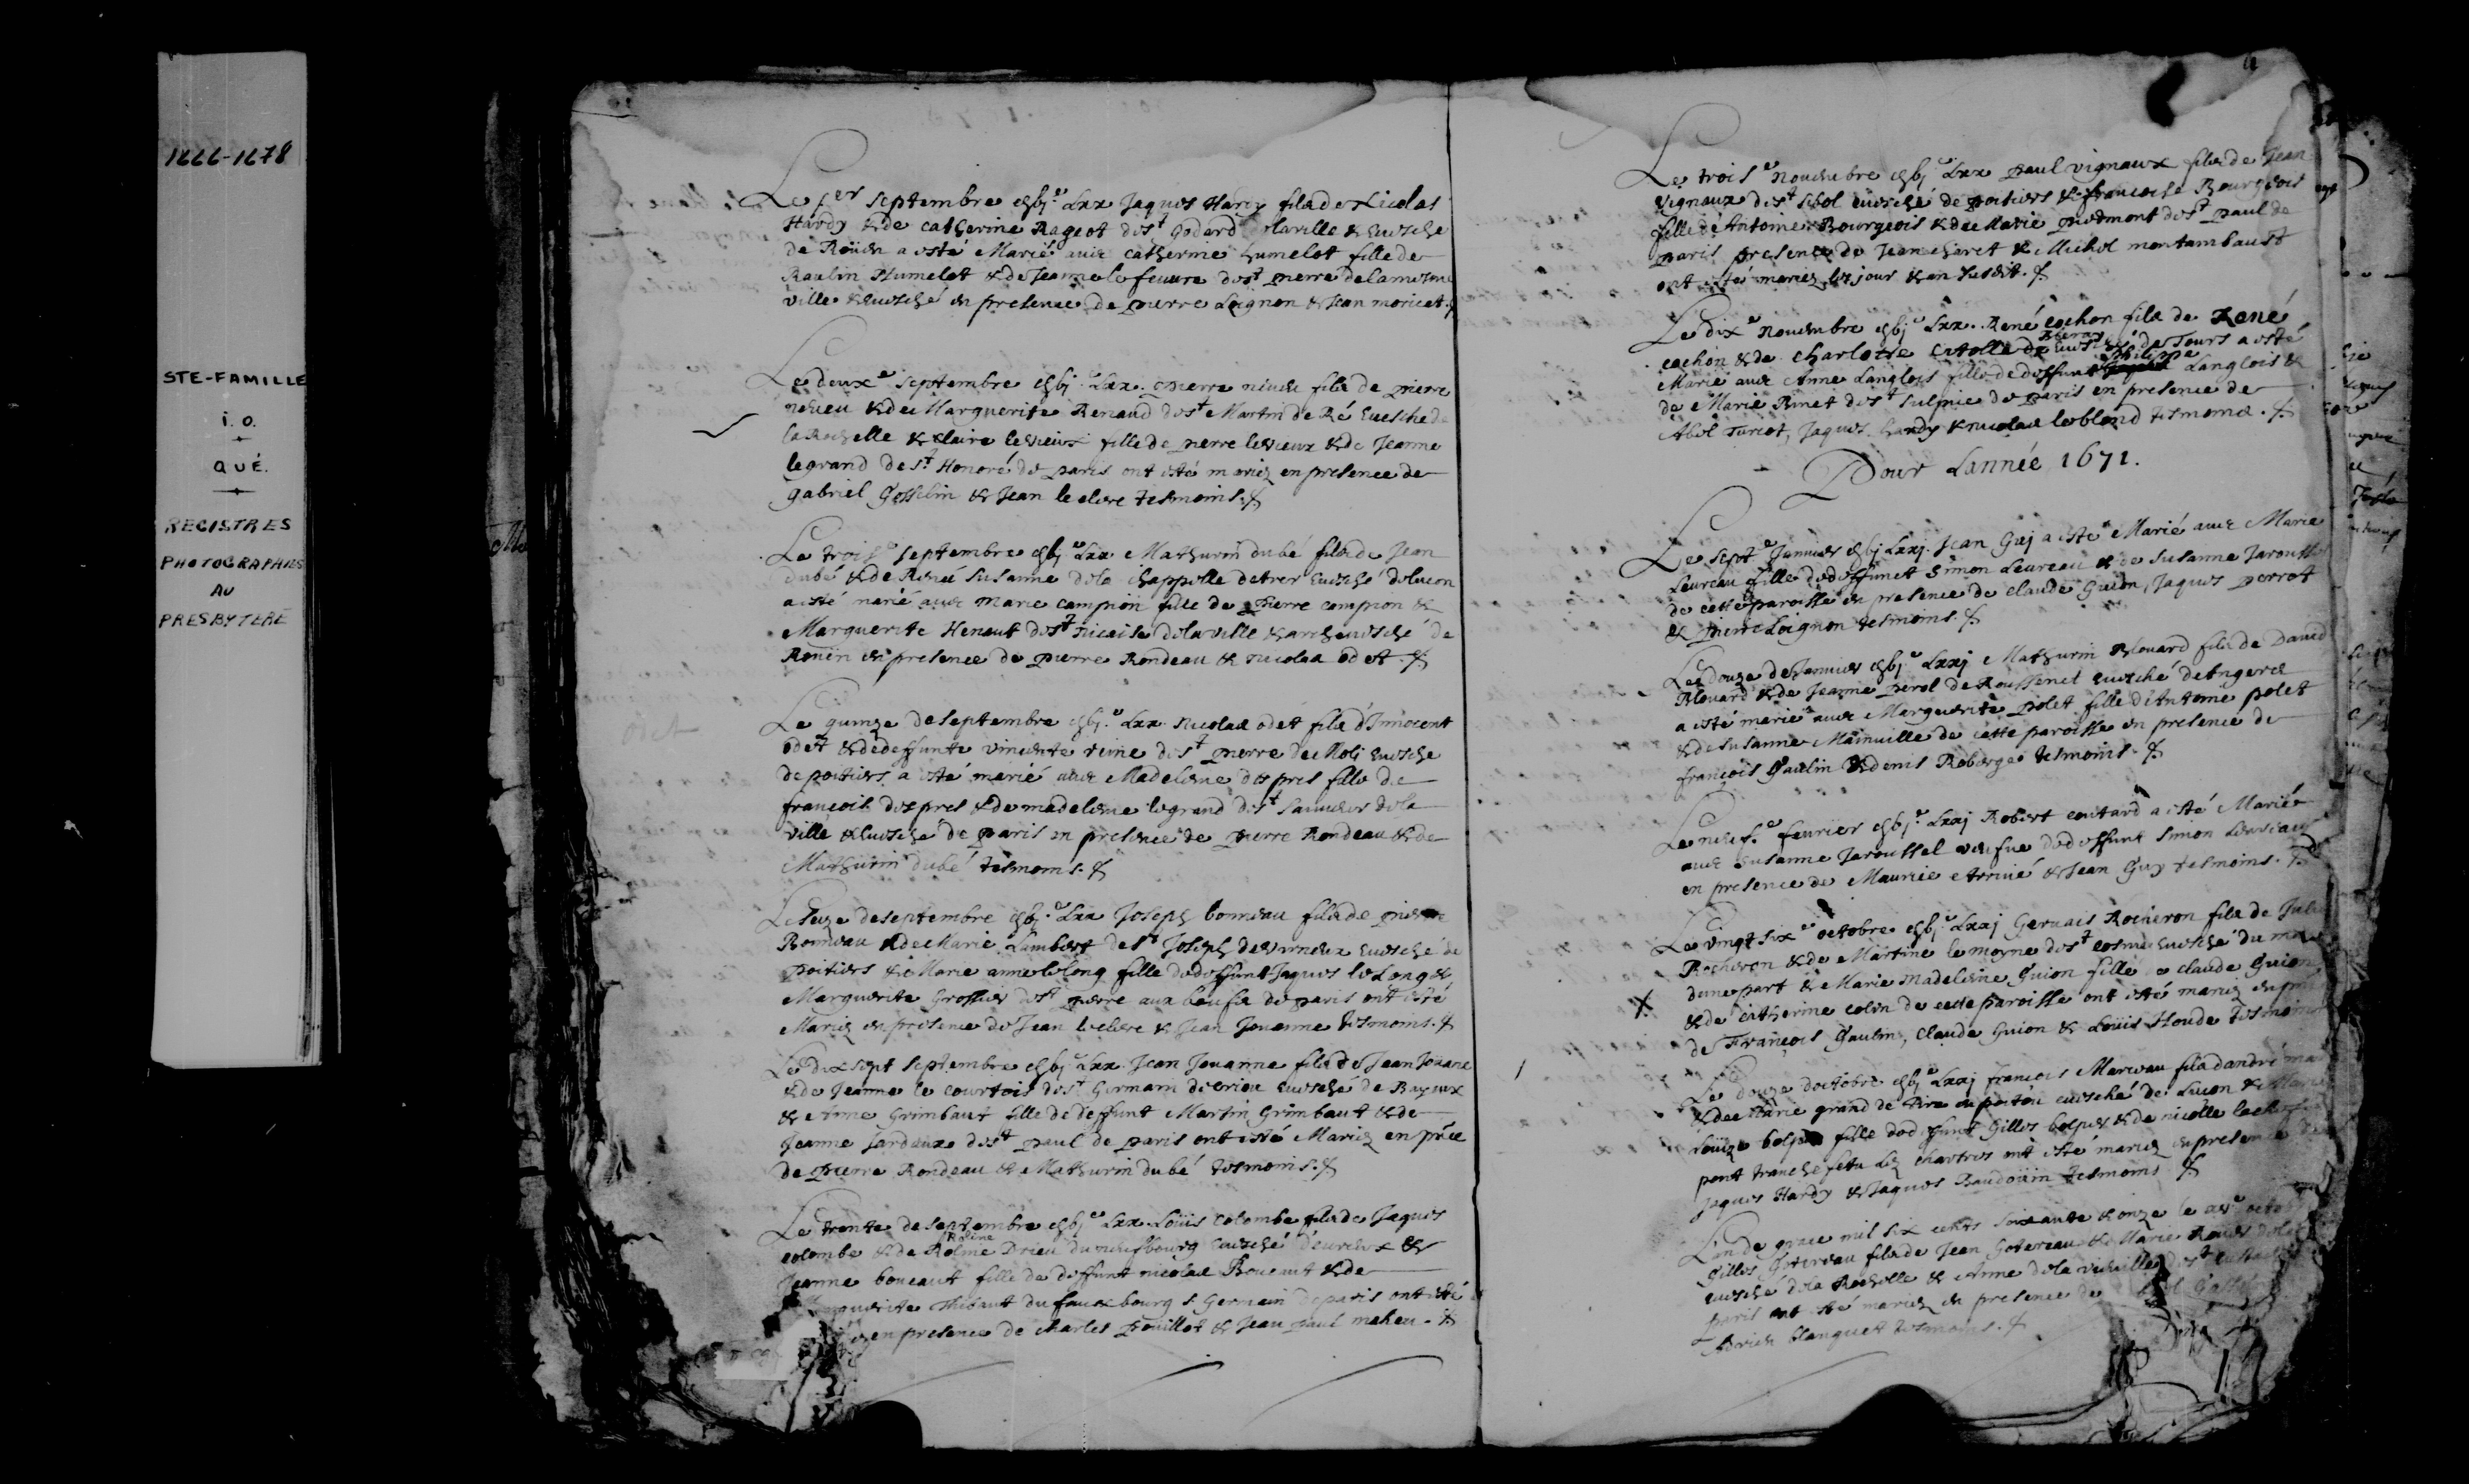 1666-1678
STE-FAMILLE
i. o.
QUÉ.
REGISTRES
PHOTOGRAPHIÉS
AU
PRESBYTERE
Le 1er septembre gbj.e Lxx Jaques Hardy fils de Nicolas
Hardy & de catherine Rageot de st Godard de la ville & Euesché
de Roüen a esté Marié auec catherine humelot fille de
Raulin Humelot & de Jeanne le feuure de st pierre de la mesme
ville & Euesché en presence de pierre Loignon & Jean moricet.
Le deuxe septembre gbj.e Lxx. pierre neueu fils de pierre
neueu & de Marguerite Renaud de st Martin de Ré Euesché de
la Rochelle & claire levieux fille de pierre levieux & de Jeanne
legrand de st Honoré de paris ont esté mariez en presence de
gabriel Gosselin & Jean leclerc tesmoins.
Le troise septembre gbj.e Lxx Mathurin dubé fils de Jean
dubé & de Renée Susanne de la chappelle euesché de lucon
a esté marié auec marie campion fille de pierre campion &
Marguerite Henaut de st nicaise de la ville & archeuesché de
Roüen en presence de pierre Rondeau & nicolas odet.
odet
Le quinze de septembre gbj.e Lxx nicolas odet fils d'Innocent
odet & de deffunte vincente reine de st pierre euesché
de poitiers a esté marié auec Madelene despres fille de
francois despres & de madelene legrand de st sauueur de la
ville & Euesché de paris en presence de pierre Rondeau & de
Mathurin dubé tesmoins.
Le seize de septembre gbj.e Lxx Joseph bonneau fils de pierre
Bonneau & de Marie Lambert de st Joseph euesché de
poitiers & Marie anne lelong fille de deffunt Jaques le Long &
Marguerite Grossier de st pierre aux beufs de paris ont esté
Mariez en presence de Jean leclerc & Jean Jouanne tesmoins.
Le dix sept septembre gbj.e Lxx Jean Jouanne fils de Jean Jouane
& de Jeanne le courtois de st Germain euesché de Bayeux
& Anne Grimbaut fille de deffunt Martin Grimbaut & de
Jeanne de st paul de paris ont esté Mariez en pñce
de pierre Rondeau & Mathurin dubé tesmoins.
Le trente de septembre gbj.e Lxx Loüis colombe fils de Jaques
Roline
colombe & de Roline Drieu du neufbourg euesché d'eureux &
Jeanne boucaut fille de deffunt nicolas Boucaut & de
Marguerite Thibaut du fauxbourg s. Germain de paris ont esté
en presence de charles pouillot & Jean paul maheu.
Le troise nouembre gbj.e Lxx paul vignaux fils de Jean
vignaux de st euesché de poitiers & francoise Bourgeois
fille de Antoine Bourgeois & de Marie piedmont de st paul de
paris presence de Jean charet & Michel montambaust
ont esté mariez les jour & an susdit.
Le dixe nouembre gbj.e Lxx. René cochon fils de René
cochon & de charlotte euesché de Tours a esté
philippe
Marié auec Anne Langlois fille de deffunt Langlois &
de Marie Binet de st sulpice de paris en presence de
Abel Turcot, Jaques hardy & nicolas leblond tesmoins.
Pour Lannée 1671.
Le sept Januier gbj Lxxj. Jean Guy a esté Marié auec Marie
Leureau fille de deffunct Simon Leureau & de Susanne Jaroussel
de cette paroisse en presence de claude Guion, Jaques perrot
& pierre Loignon tesmoins.
Le douze de Januier gbj.e Lxxj Mathurin Blouard fils de Dauid
Blouard & de Jeanne euesché de Angers
a esté marié auec Marguerite polet fille d'Antoine polet
& de Susanne Mainuille de cette paroisse en presence de
françois Gaulin & denis Roberge tesmoins.
Le neuf.e feurier gbj.e Lxxj Robert coutard a esté Marié
auec Susanne Jaroussel veufue de deffunt Simon Leureau
en presence de Maurice Arriué & Jean Guy tesmoins.
Le vingt sixe octobre gbj.e Lxxj Geruais Rocheron fils de Julien
Rocheron & de Martine lemoyne de st cosme euesché du mans
dune part & Marie Madeleine Guion fille de claude Guion
& de catherine colin de cette paroisse ont esté mariez en
de François Gaulin, claude Guion & Loüis Houde tesmoins
Le douze doctobre gbj.e Lxxj francois Marceau fils dandré
& de Marie grand de en poitou euesché de Lucon & Marie
Louize bolper fille de deffunt Gilles bolper & de nicolle
pont tranchefetu lez chartres ont esté mariez en presence de
Jaques Hardy & Jaques Baudoüin tesmoins
Lan de grace mil six cents soixante & onze le octobre
Gilles Gotereau fils de Jean Gotereau & Marie
euesché de la Rochelle & Anne de la vieuille de st
paris ont esté mariez en presence de
Adrien blanquet tesmoins.